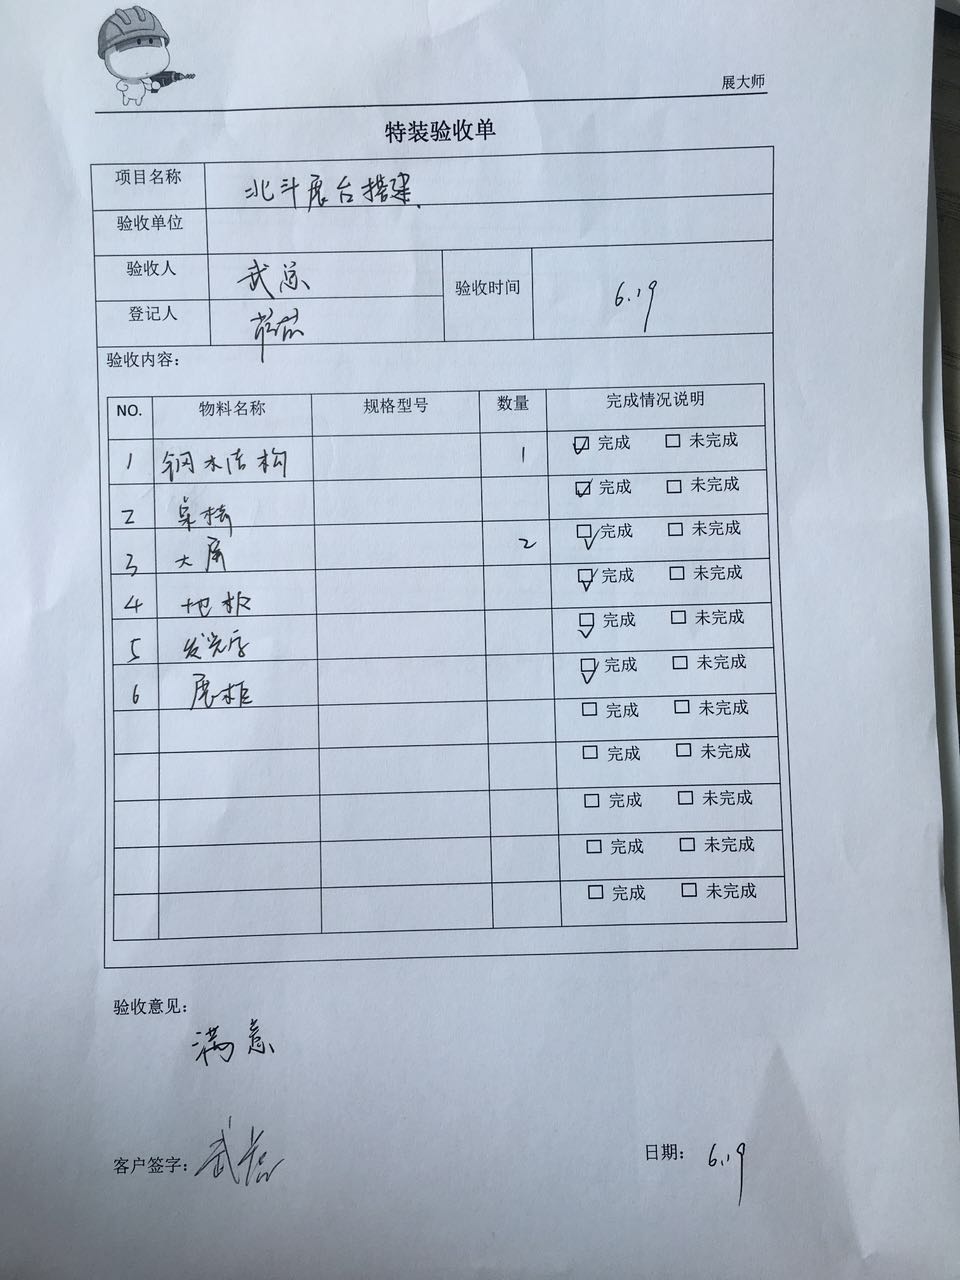 展大师
特装验收单
项目名称 北斗展台搭建
验收单位
验收人 武总 验收时间 6.19
登记人
验收内容：
NO. 物料名称 规格型号 数量 完成情况说明
1 钢木结构 1 ☑ 完成 □ 未完成
2 桌椅 ☑ 完成 □ 未完成
3 大屏 2 ☑ 完成 □ 未完成
4 地板 ☑ 完成 □ 未完成
5 发光字 ☑ 完成 □ 未完成
6 展柜 ☑ 完成 □ 未完成
□ 完成 □ 未完成
□ 完成 □ 未完成
□ 完成 □ 未完成
□ 完成 □ 未完成
□ 完成 □ 未完成
验收意见：
满意
客户签字： 武 日期： 6.19